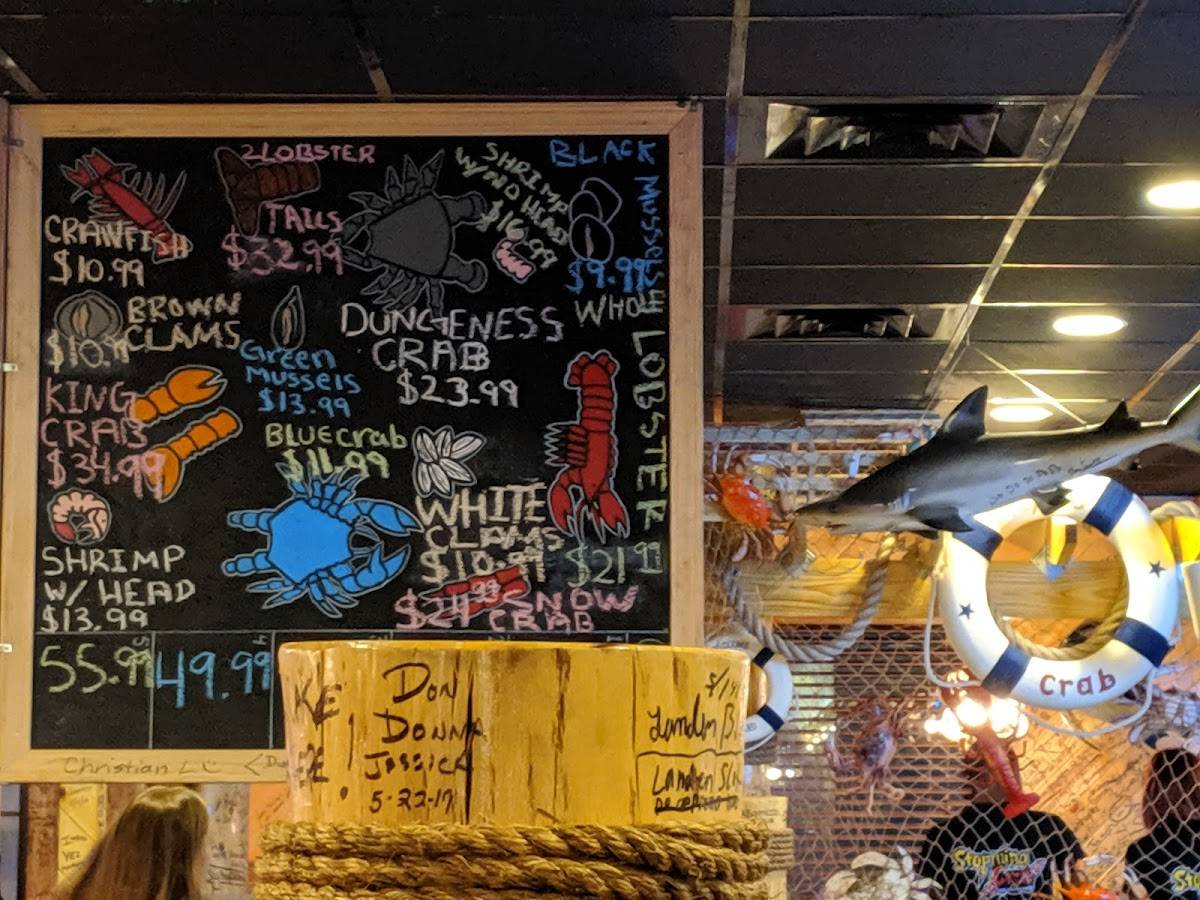 CRAWFISH
$10.99
2 LOBSTER
TAILS
$32.99
SHRIMP
W/NO HEAD
$16.99
BLACK
Mussels
$9.99
BROWN
CLAMS
$10.99
Green
Mussels
$13.99
DUNGENESS
CRAB
$23.99
WHOLE
LOBSTER
$21.99
KING
CRAB
$34.99
BLUE crab
$11.99
WHITE
CLAMS
$10.99
SHRIMP
W/ HEAD
$13.99
$24.99 SNOW
CRAB
55.99
49.99
Christian L
DON
DONNA
JESSICA
5-22-17
Landin B.
Landen
Crab